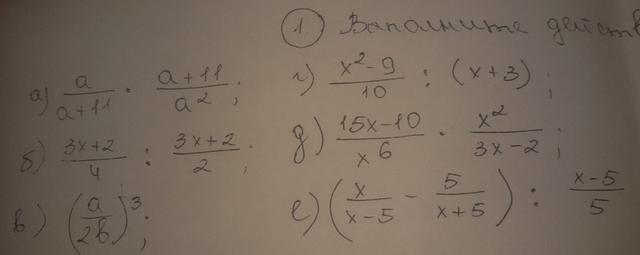 1. Выполните действ
а) a/(a+11) · (a+11)/a²;
б) (3x+2)/4 : (3x+2)/2;
в) (a/2b)³;
г) (x²-9)/10 : (x+3);
д) (15x-10)/x⁶ · x²/(3x-2);
е) (x/(x-5) - 5/(x+5)) : (x-5)/5